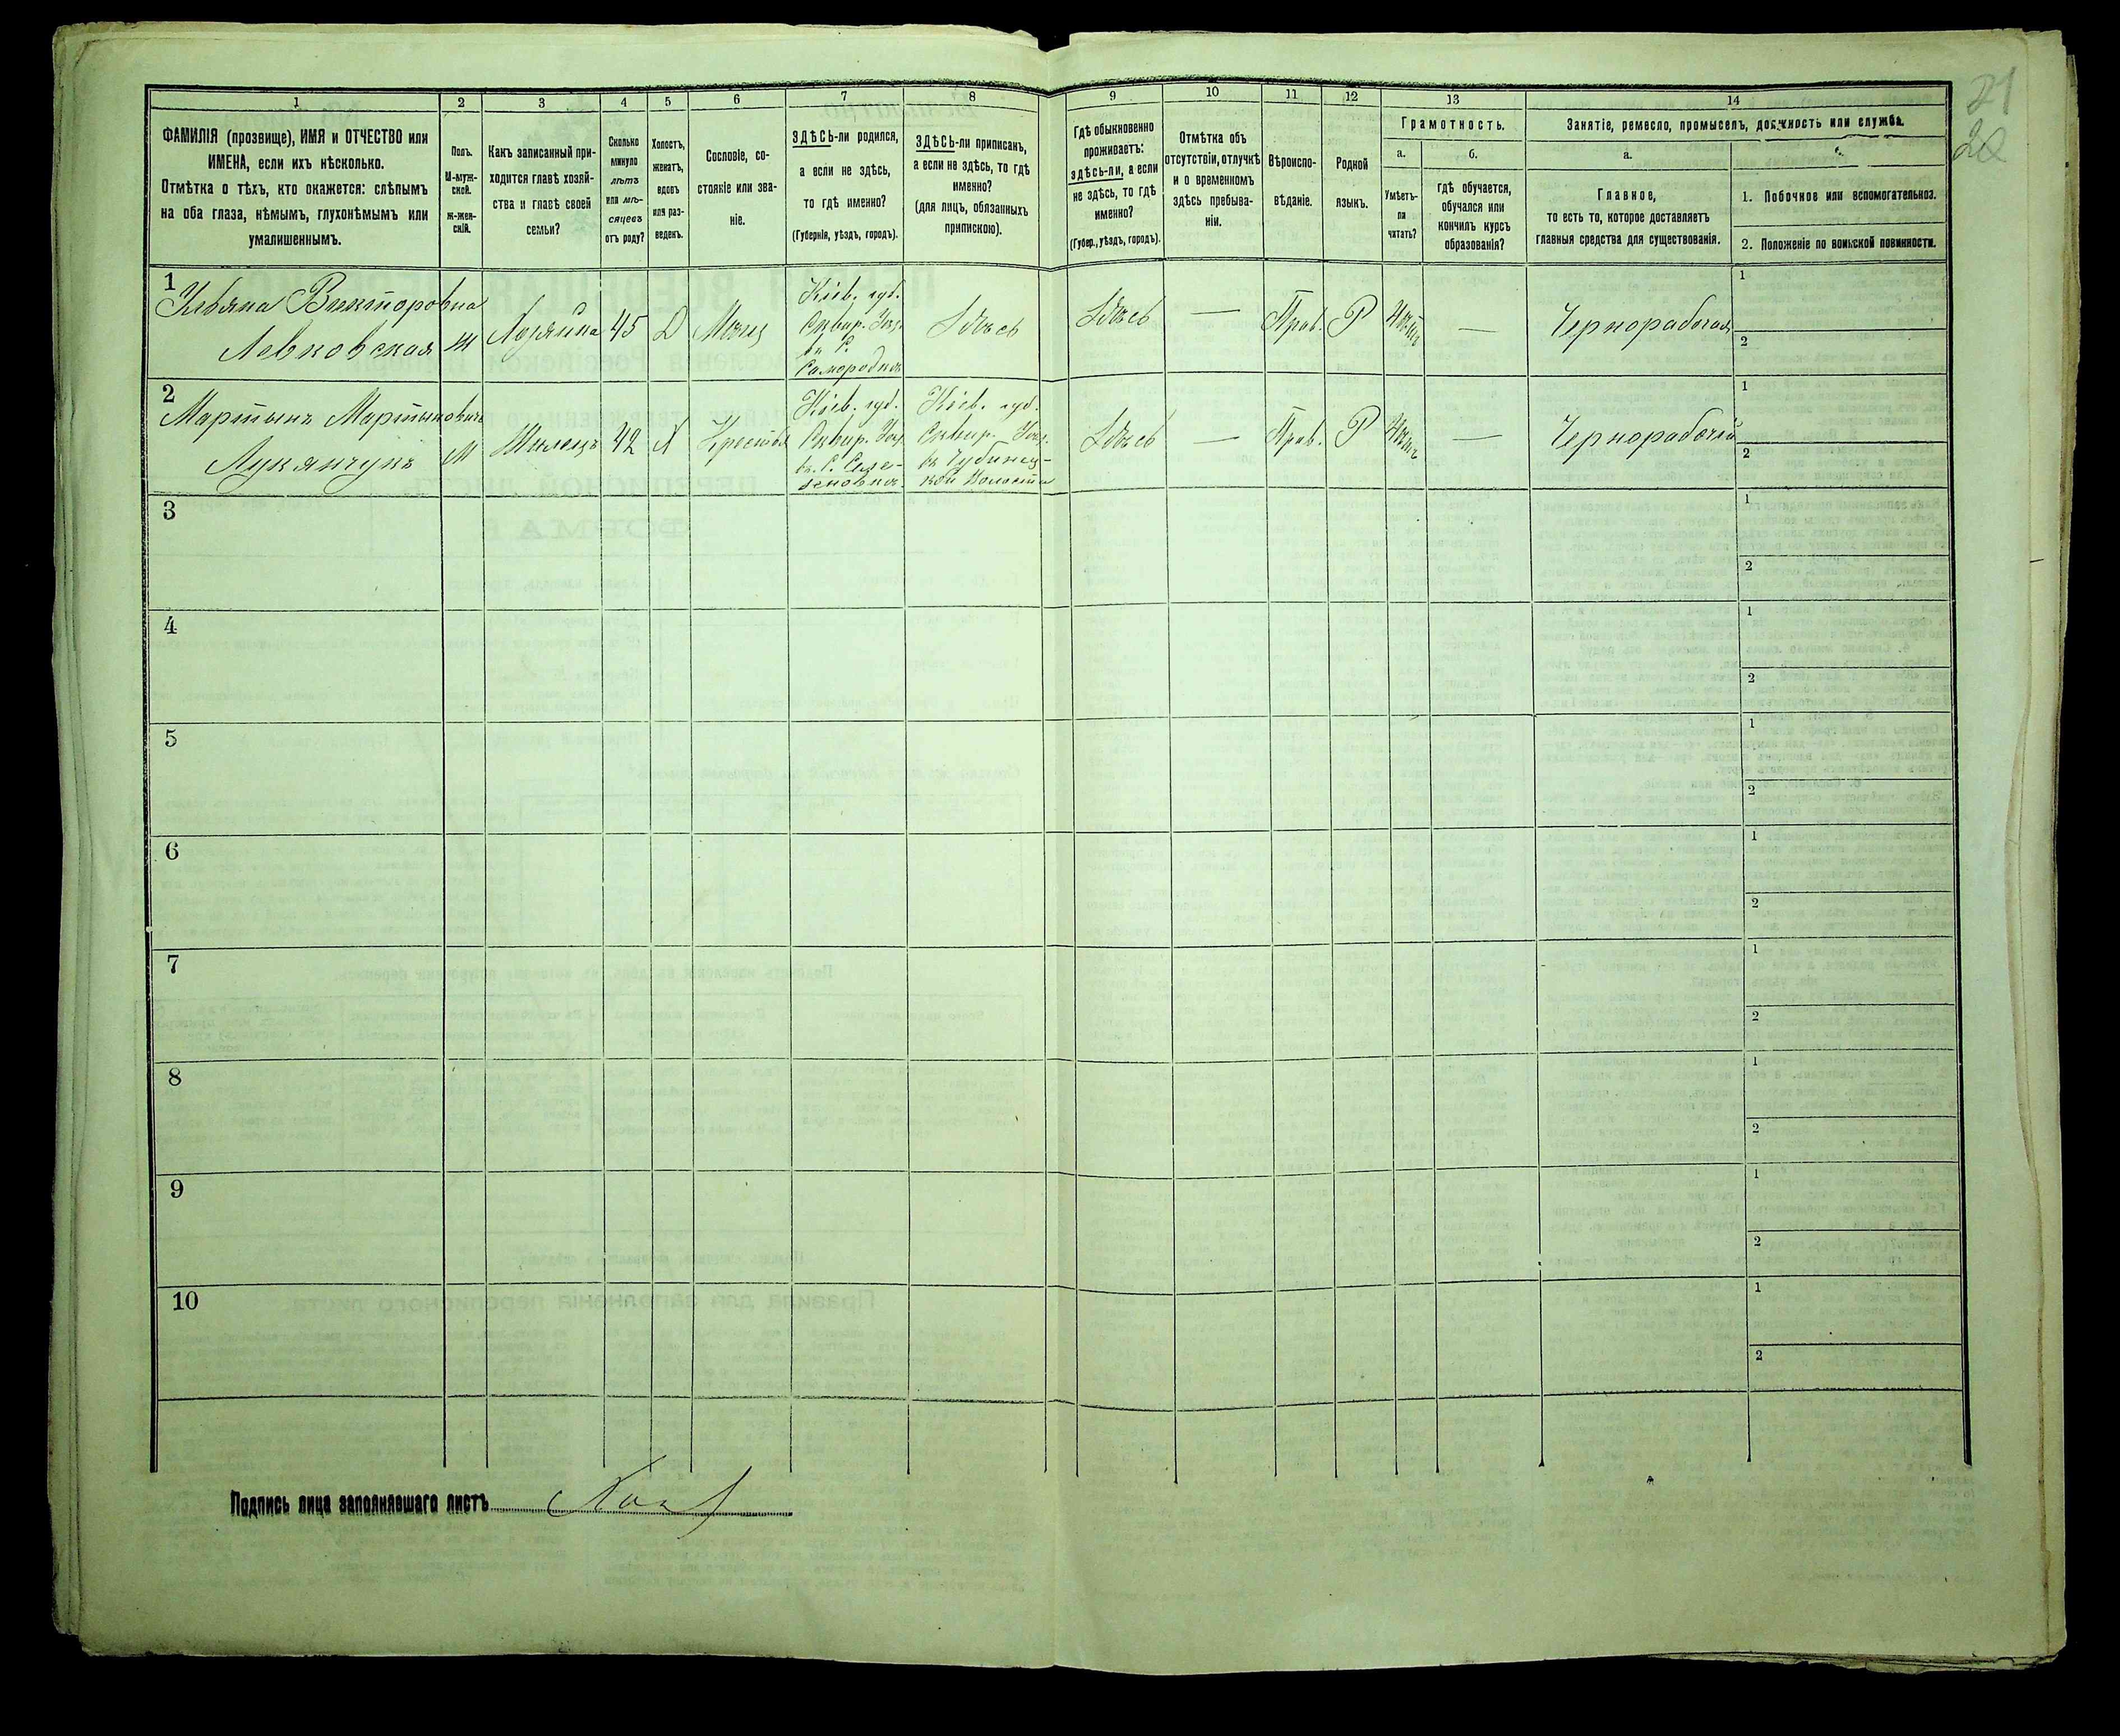 21
20
1
2
3
4
5
6
7
8
9
10
11
12
13
14
ФАМИЛІЯ (прозвище), ИМЯ и ОТЧЕСТВО или
ИМЕНА, если ихъ нѣсколько.
Отмѣтка о тѣхъ, кто окажется: слѣпымъ
на оба глаза, нѣмымъ, глухонѣмымъ или
умалишеннымъ.
Полъ.
М-муж-
ской.
Ж-жен-
скій.
Какъ записанный при-
ходится главѣ хозяй-
ства и главѣ своей
семьи?
Сколько
минуло
лѣтъ
или мѣ-
сяцевъ
отъ роду?
Холостъ,
женатъ,
вдовъ
или раз-
веденъ.
Сословіе, со-
стояніе или зва-
ніе.
ЗДѢСЬ-ли родился,
а если не здѣсь,
то гдѣ именно?
(Губернія, уѣздъ, городъ).
ЗДѢСЬ-ли приписанъ,
а если не здѣсь, то гдѣ
именно?
(для лицъ, обязанныхъ
припискою).
Гдѣ обыкновенно
проживаетъ:
здѣсь-ли, а если
не здѣсь, то гдѣ
именно?
(Губер., уѣздъ, городъ).
Отмѣтка объ
отсутствіи, отлучкѣ
и о временномъ
здѣсь пребыва-
ніи.
Вѣроиспо-
вѣданіе.
Родной
языкъ.
Грамотность.
а.
Умѣетъ-
ли
читать?
б.
гдѣ обучается,
обучался или
кончилъ курсъ
образованія?
Занятіе, ремесло, промыселъ, должность или служба.
а.
Главное,
то есть то, которое доставляетъ
главныя средства для существованія.
1. Побочное или вспомогательное.
2. Положеніе по воинской повинности.
1
Ульяна Викторовна
Левковская
ж
Хозяйка
45
Д
Мѣщ
Кіев. губ.
Сквир. Уѣз.
Самородня
Здѣсь
Здѣсь
—
Прав.
Р
Нѣтъ
—
Чернорабочая
1
2
2
Мартынъ Мартыновичъ
Лукянчукъ
М
Жилецъ
42
Х
Крестья
Кіев. губ.
Сквир. Уѣз.
Кіев. губ.
Сквир. Уѣз.
въ Чубинец-
кой Волости
Здѣсь
—
Прав.
Р
Нѣтъ
—
Чернорабочій
1
2
3
1
2
4
1
2
5
1
2
6
1
2
7
1
2
8
1
2
9
1
2
10
1
2
Подпись лица заполнявшаго листъ